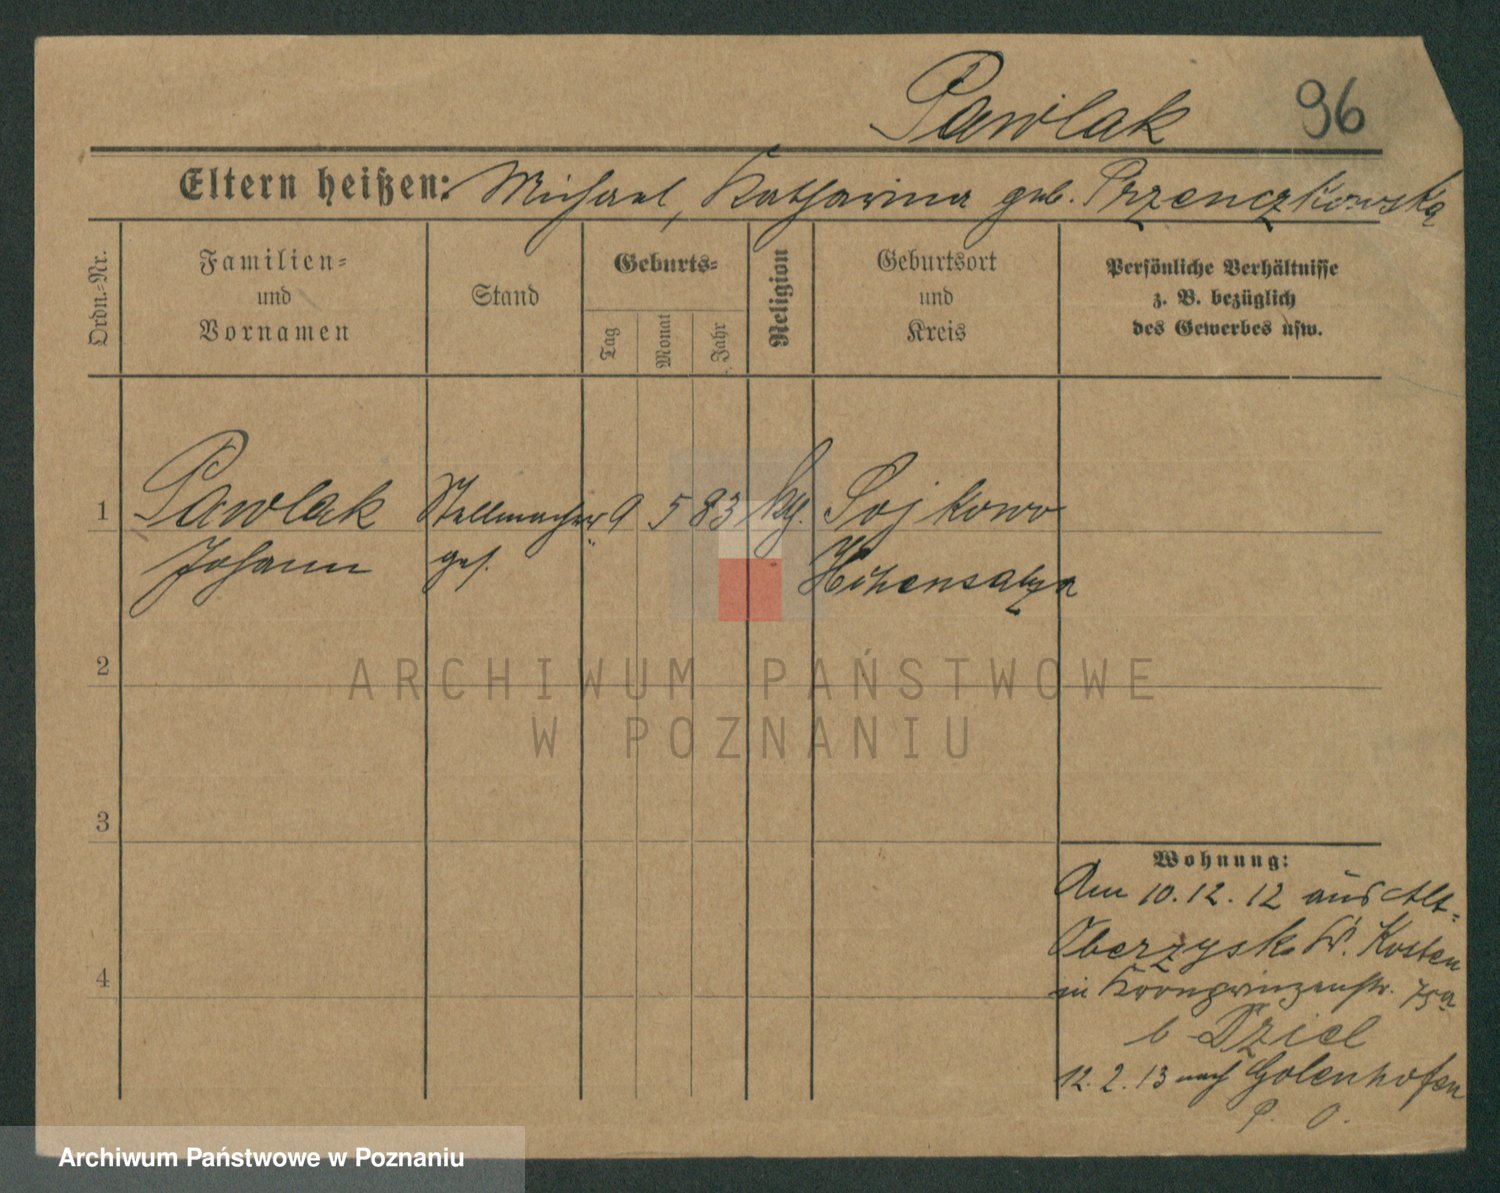 Pawlak 96
Eltern heißen: Michael, Katharina geb. Przenczkowska
Ordn.-Nr.
Familien-
und
Vornamen
Stand
Geburts-
Tag
Monat
Jahr
Religion
Geburtsort
und
Kreis
Persönliche Verhältnisse
z. B. bezüglich
des Gewerbes usw.
1 Pawlak Stellmacher 9 5 83 kth. Sojkowo
Johann ges. Hohensalza
2
3
4
Wohnung:
Am 10.12.12 aus Alt-
Oberzysk Kr. Kosten
in Kronprinzenstr. 75a
b Dziel
12.2.13 nach Golenhofen
P. O.
ARCHIWUM PAŃSTWOWE
W POZNANIU
Archiwum Państwowe w Poznaniu